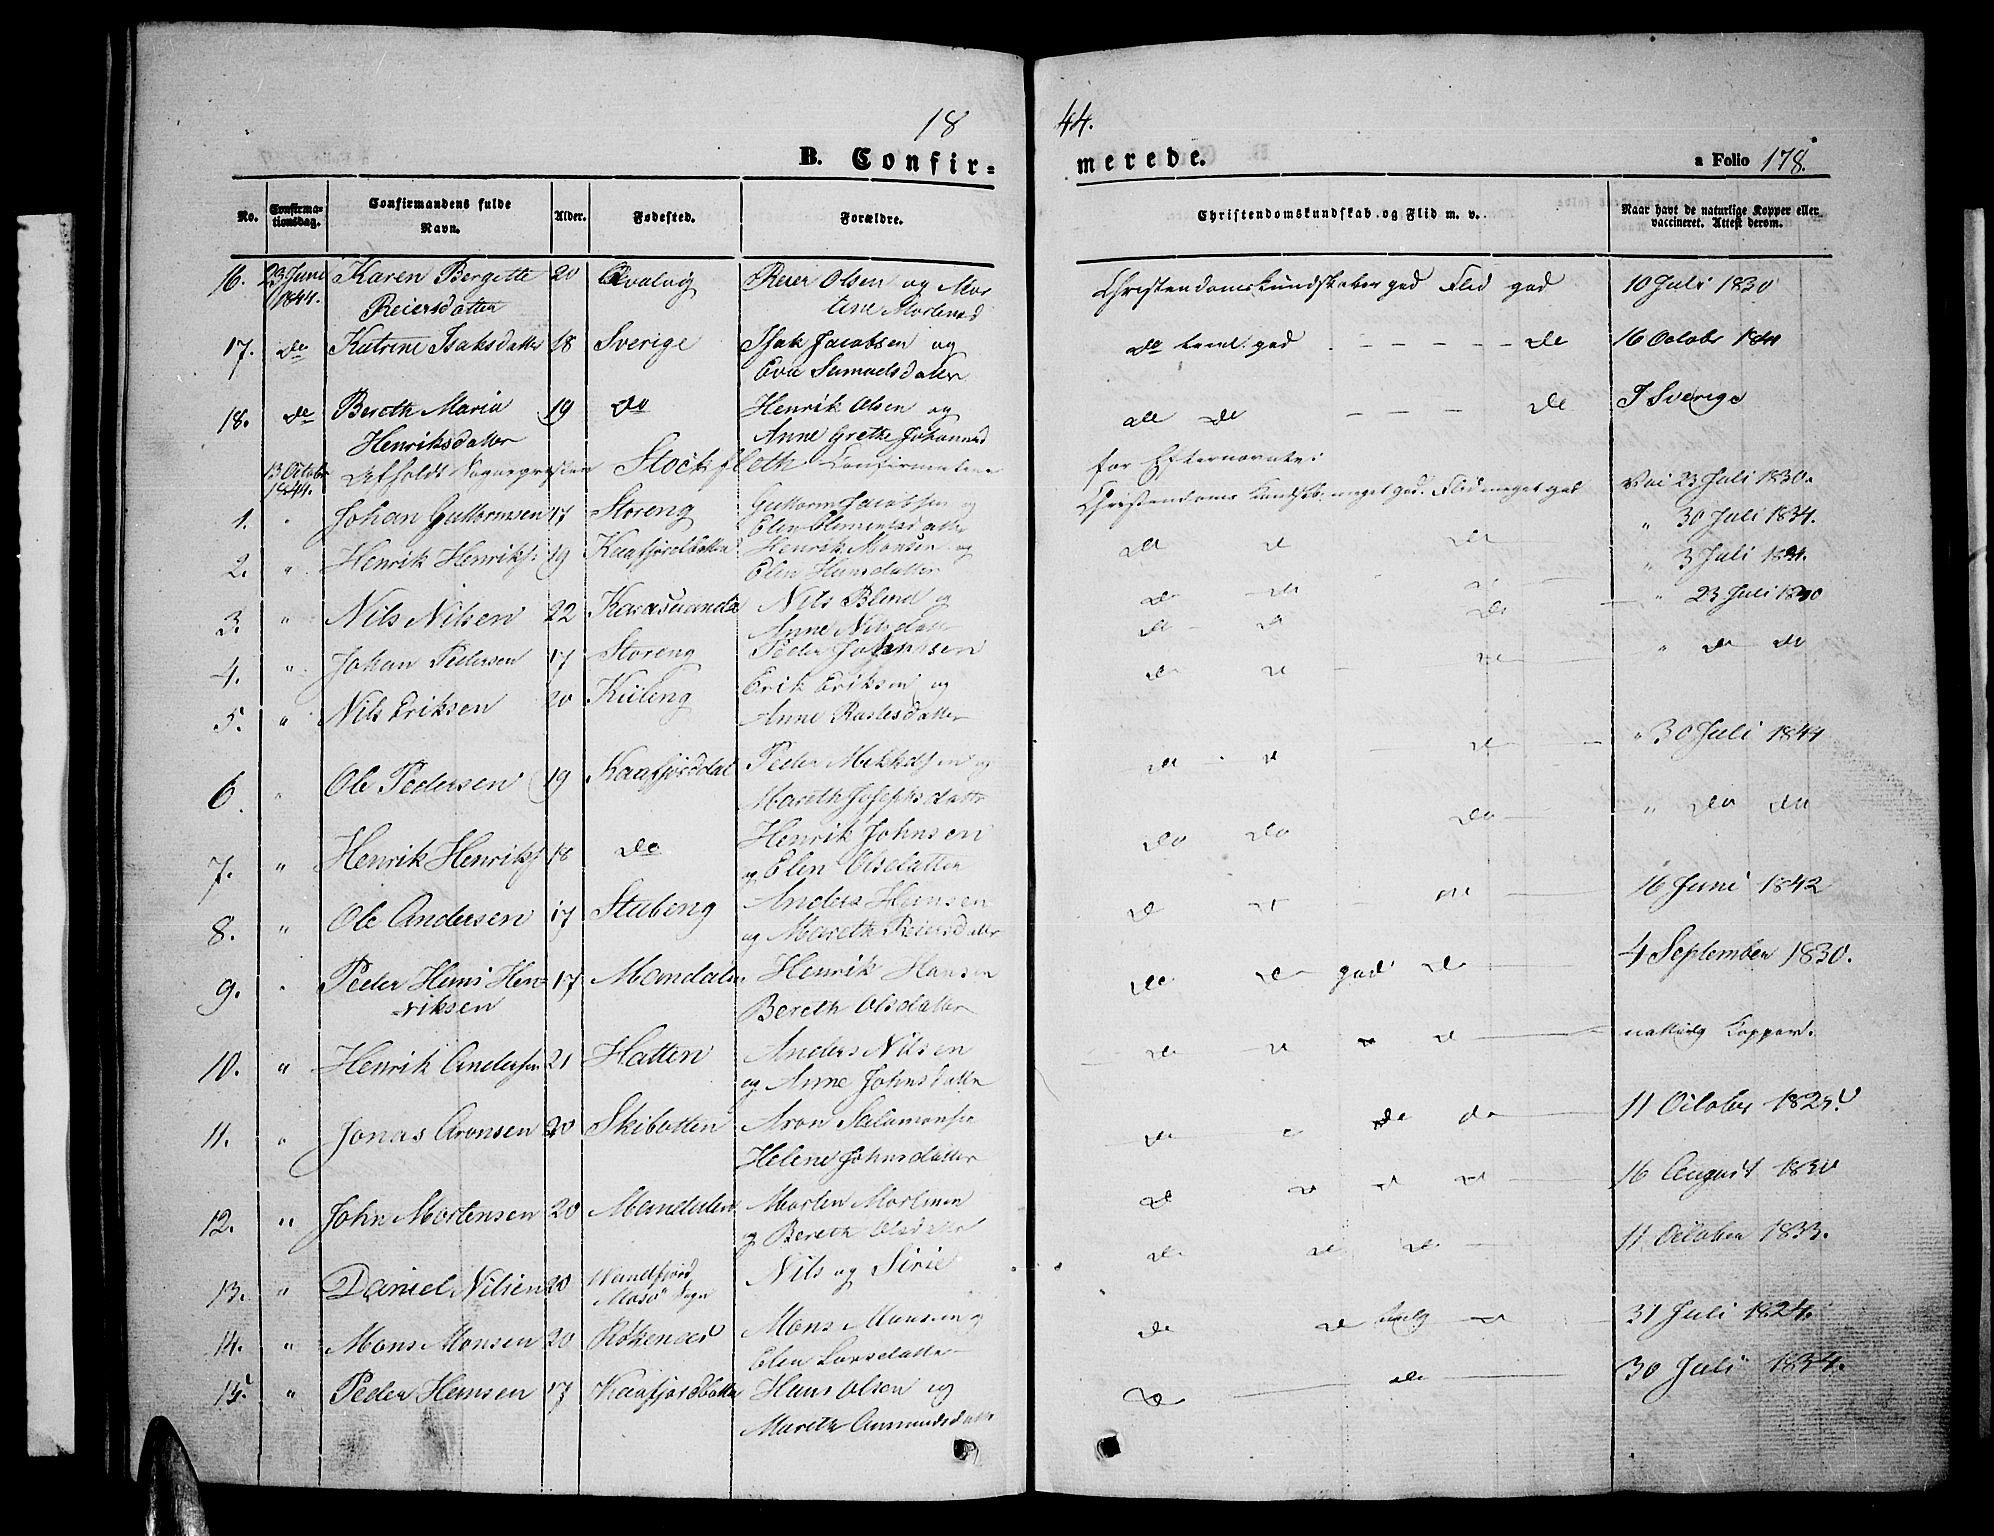 18 44.
B. Confir= merede. a Folio 178.
No. Confirma-tionsdag. Confirmandens fulde Navn. Alder. Fødested. Forældre. Christendomskundskab og Flid m. v. Naar havt de naturlige Kopper eller vaccineret. Attest derom.
16. 23 Juni Karen Bergette 20 Qvalvig Reier Olsen og Mor Christendomskundskaber god Flid god 10 Juli 1830
1844. Reiersdatter tine Mortensd
17. do Katrine Isaksdatter 18 Sverige Isak Jacobsen og do temi. god - - - - - do 16 Octobr 1841
Eva Samuelsdatter
18. do Bereth Maria 19 do Henrik Olsen og do do - - - - do I Sverige
Henriksdatter Anne Grethe Johannesd
13 October Stockfleth Confirmatione for
1844.
1. " Johan Guttormsen 17 Storeng Guttorm Jacobsen og Christendoms Kundskb. meget god. Flid meget god Vac 23 Juli 1830.
Elen Clemetsdatter
2. " Henrik Henriks: 19 Kaafjordbotten Henrik Monsen og do do do " 30 Juli 1834.
Elen Hansdatter
3. " Nils Nilsen 22 Karasuando Nils Blind og do do " 3 Juli 1831.
Anne Nilsdatter
4. " Johan Pedersen 17 Storeng Peder Johannesen do do do " 23 Juli 1830
5. " Nils Eriksen 20 Kileng Erik Eriksen og do do do " do do
Anne Rastesdatter
6. " Ole Pedersen 19 Kaafjorddal Peder Mikkelsen og do do do " 30 Juli 1844
Mareth Josephsdatter
7. " Henrik Henriks 18 do Henrik Johnsen do do do " do do
og Elen Olsdatter
8. " Ole Andersen 17 Stubeng Anders Hansen do do do 16 Juni 1842
og Mareth Reiersdatter
9. " Peder Hans Hen= 17 Mandalen Henrik Hansen do do god do 4 September 1830.
=riksen Bereth Olsdatter
10. " Henrik Andersen 21 Hatten Anders Nilsen do do do naturlig Kopper.
og Anne Johnsdatter
11. " Jonas Aronsen 20 Skibotten Aron Salamonsen do do do 11 October
Helene Johnsdatter
12. " John Mortensen 20 Mandalen Morten Mortensen do do do do 16 August 1830
og Bereth Olsdatter
13. " Daniel Nilsen 20 Nils og Sirie do do do 11 October 1833.
Masø Sogn
14. " Mons Monsen 20 Rokenæs Mons Monsen og do do do 31 Juli 1824.
Elen Larsdatter
15. " Peder Hansen 17 Kaafjordbotten Hans Olsen og do do 30 Juli 1834.
Mareth Amundsdatter